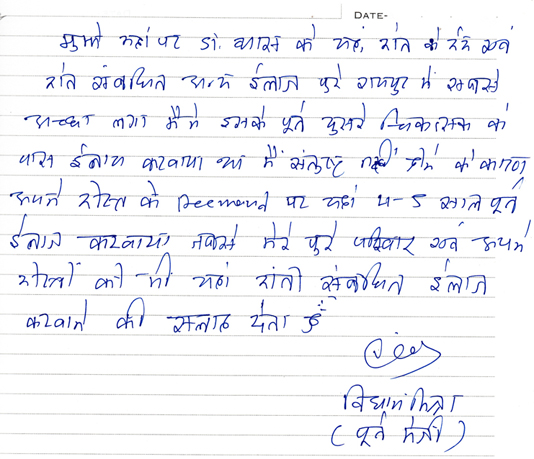 DATE-
मुझे यहां पर डॉ. व्यास के यहां, दांत के दर्द एवं
दांत संबंधित अन्य ईलाज पुरे रायपुर में सबसे
अच्छा लगा मैंने इसके पूर्व दुसरे चिकित्सक के
पास ईलाज करवाया था मैं संतुष्ट नहीं होने के कारण
अपने दोस्त के पर यहां 4-5 साल पूर्व
ईलाज करवाया जबसे मेरे पुरे परिवार एवं अपने
दोस्तों को भी यहां दांतो संबंधित ईलाज
करवाने की सलाह देता हूँ
(पूर्व मंत्री)